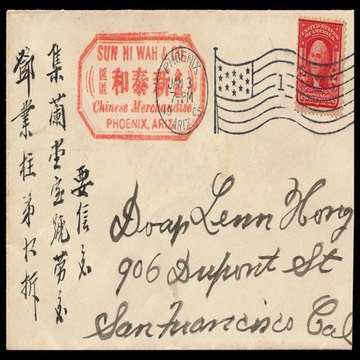 SUN HI WAH & CO
和泰新
Chinese Merchandise
PHOENIX, ARIZ
PHOENIX
JAN 3
7-PM
ARIZ.
1
集蘭堂宝號勞交
要信交
鄧業柱弟收拆
Doap Lenn Hong
906 Dupont St
San Francisco Cal